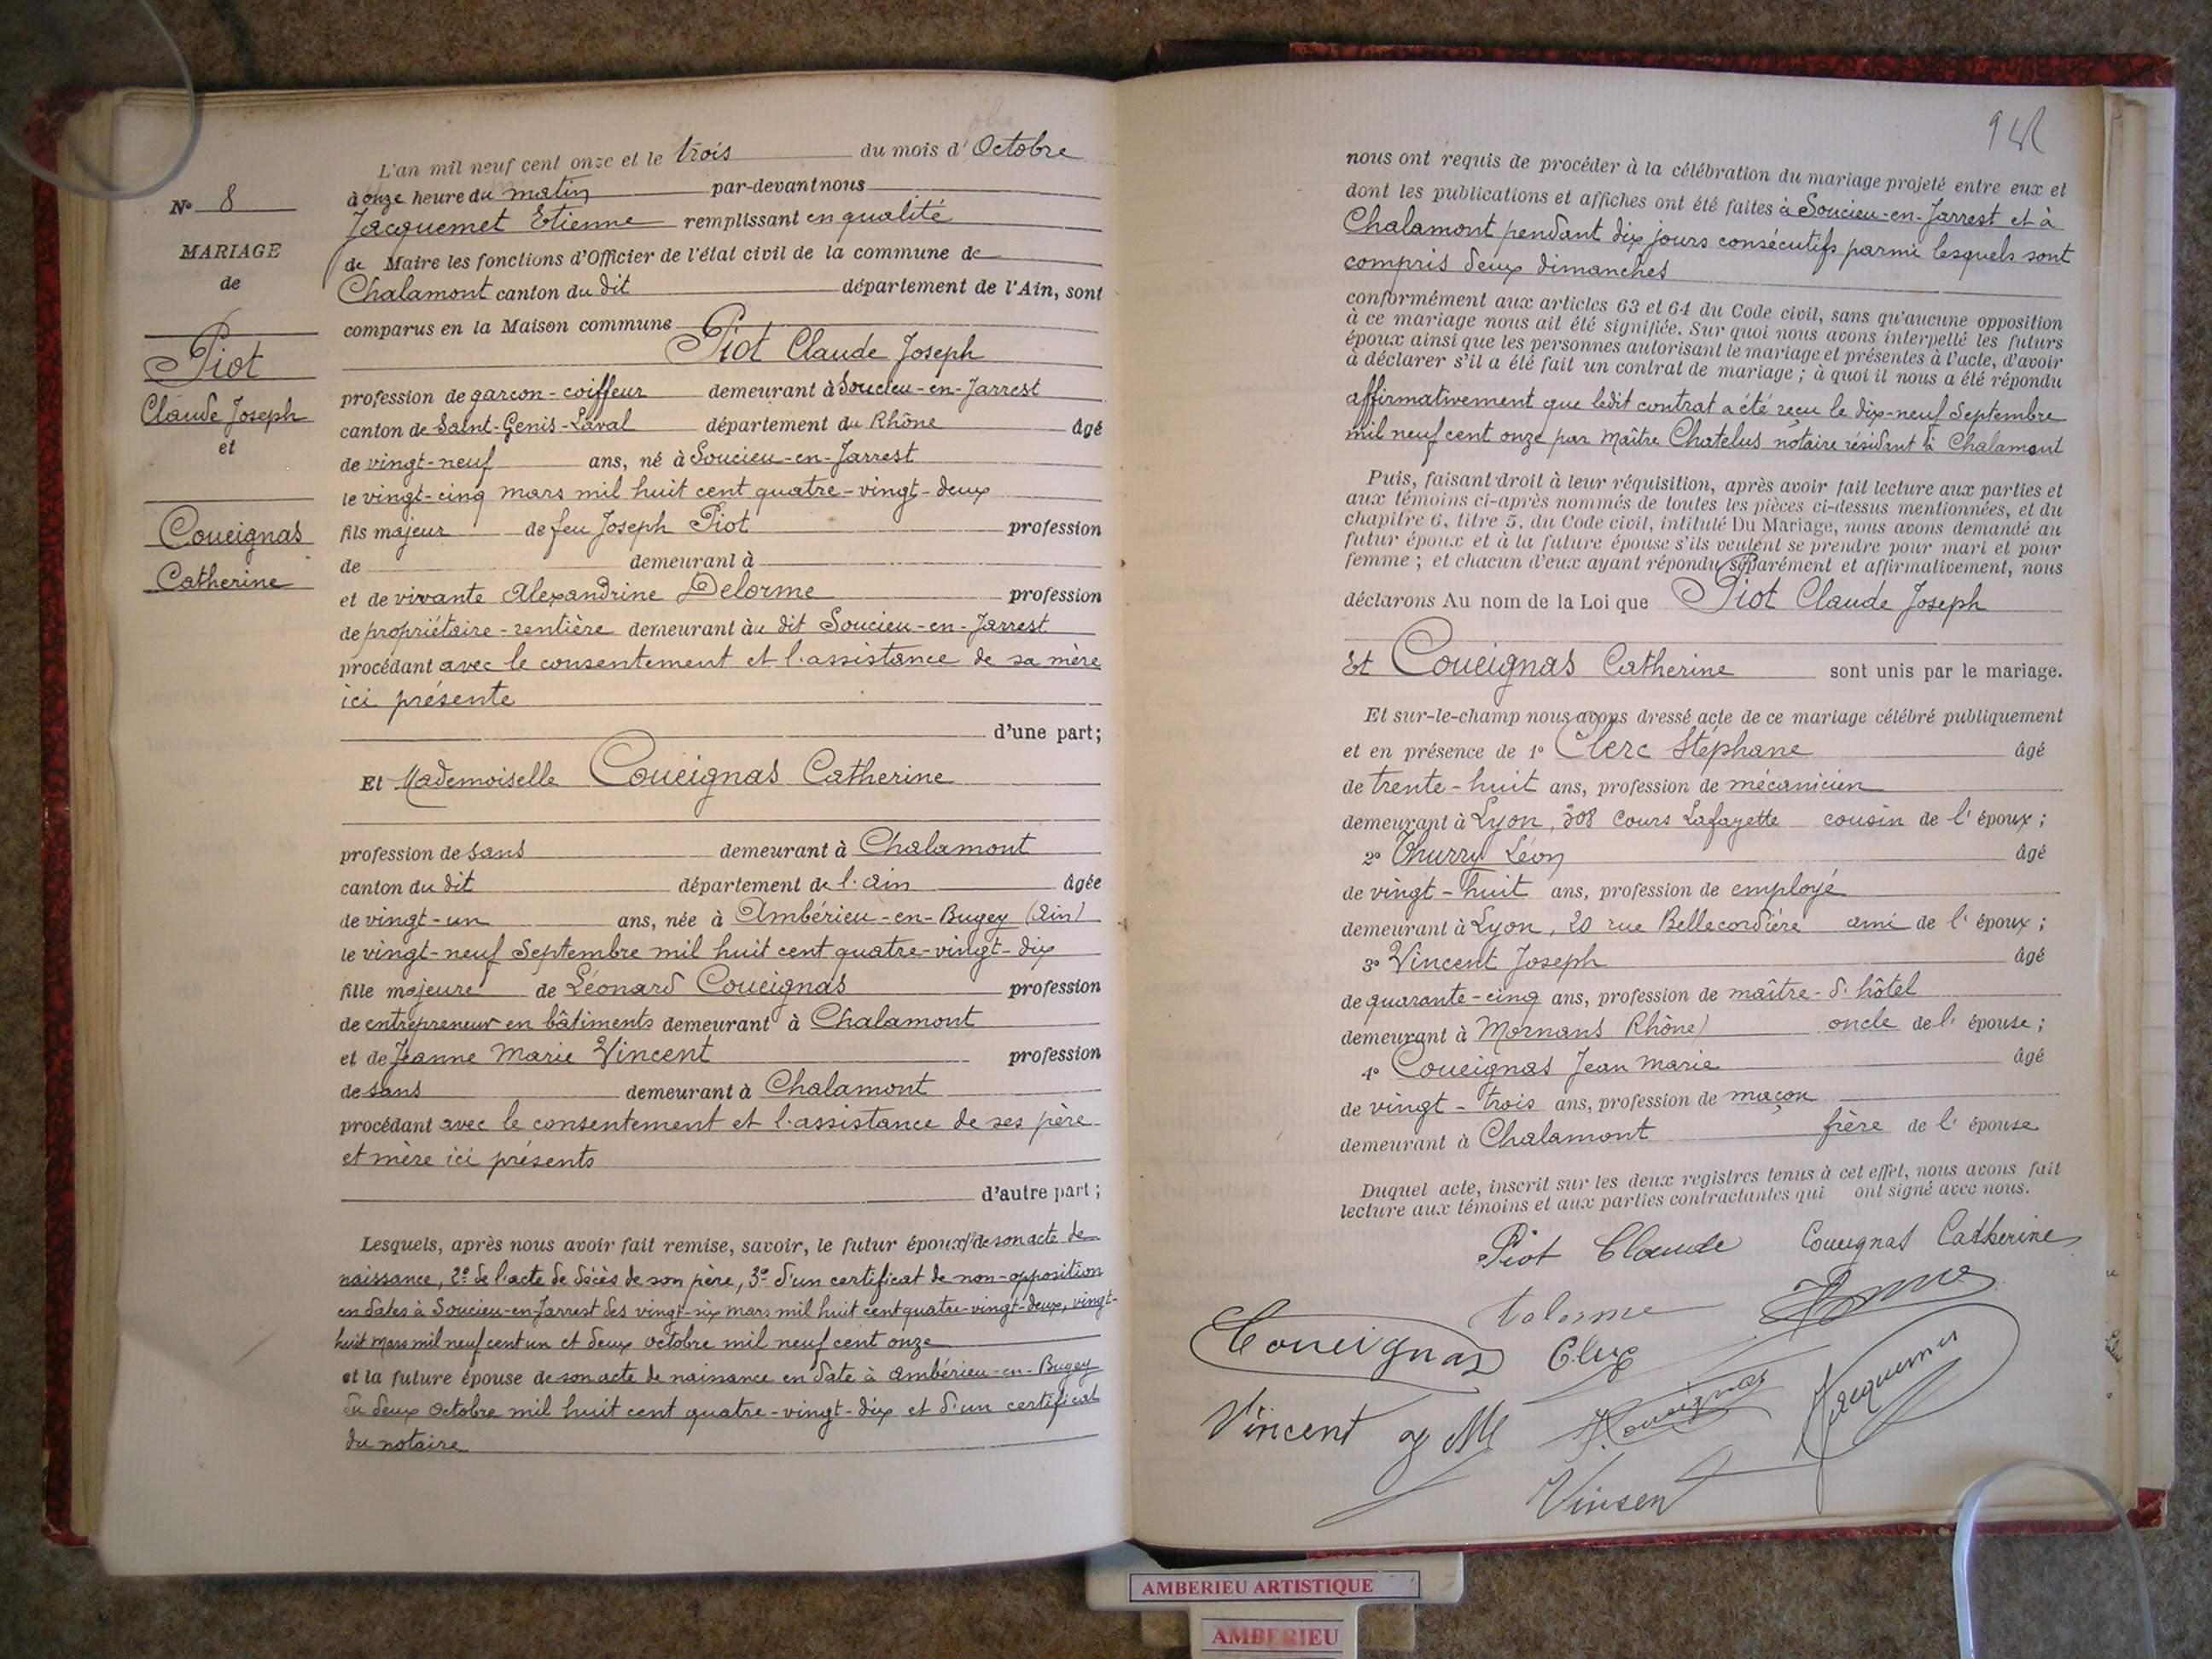 N° 8
MARIAGE
de
Piot
Claude Joseph
et
Coueignas
Catherine
L'an mil neuf cent onze et le trois du mois d'Octobre
à onze heure du matin par-devant nous
Jacquemet Etienne remplissant en qualité
de Maire les fonctions d'Officier de l'état civil de la commune de
Chalamont canton du dit département de l'Ain, sont
comparus en la Maison commune
Piot Claude Joseph
profession de garçon-coiffeur demeurant à Soucieu-en-Jarrest
canton de Saint-Genis-Laval département du Rhône âgé
de vingt-neuf ans, né à Soucieu-en-Jarrest
le vingt-cinq mars mil huit cent quatre-vingt-deux
fils majeur de feu Joseph Piot profession
de demeurant à
et de vivante Alexandrine Delorme profession
de propriétaire-rentière demeurant au dit Soucieu-en-Jarrest
procédant avec le consentement et l'assistance de sa mère
ici présente
d'une part;
Et Mademoiselle Coueignas Catherine
profession de sans demeurant à Chalamont
canton du dit département de l'Ain âgée
de vingt-un ans, née à Ambérieu-en-Bugey (Ain)
le vingt-neuf Septembre mil huit cent quatre-vingt-dix
fille majeure de Léonard Coueignas profession
de entrepreneur en bâtiments demeurant à Chalamont
et de Jeanne Marie Vincent profession
de sans demeurant à Chalamont
procédant avec le consentement et l'assistance de ses père
et mère ici présents
d'autre part;
Lesquels, après nous avoir fait remise, savoir, le futur époux 1° de son acte de
naissance, 2° de l'acte de décès de son père, 3° d'un certificat de non-opposition
en dates à Soucieu-en-Jarrest des vingt-six mars mil huit cent quatre-vingt-deux, vingt-
huit mars mil neuf cent un et deux octobre mil neuf cent onze
et la future épouse de son acte de naissance en date à Ambérieu-en-Bugey
du deux Octobre mil huit cent quatre-vingt-dix et d'un certificat
du notaire
nous ont requis de procéder à la célébration du mariage projeté entre eux et
dont les publications et affiches ont été faites à Soucieu-en-Jarrest et à
Chalamont pendant dix jours consécutifs parmi lesquels sont
compris deux dimanches
conformément aux articles 63 et 64 du Code civil, sans qu'aucune opposition
à ce mariage nous ait été signifiée. Sur quoi nous avons interpellé les futurs
époux ainsi que les personnes autorisant le mariage et présentes à l'acte, d'avoir
à déclarer s'il a été fait un contrat de mariage; à quoi il nous a été répondu
affirmativement que ledit contrat a été reçu le dix-neuf Septembre
mil neuf cent onze par Maître Chatelus notaire résidant à Chalamont
Puis, faisant droit à leur réquisition, après avoir fait lecture aux parties et
aux témoins ci-après nommés de toutes les pièces ci-dessus mentionnées, et du
chapitre 6, titre 5, du Code civil, intitulé Du Mariage, nous avons demandé au
futur époux et à la future épouse s'ils veulent se prendre pour mari et pour
femme; et chacun d'eux ayant répondu séparément et affirmativement, nous
déclarons Au nom de la Loi que Piot Claude Joseph
Et Coueignas Catherine sont unis par le mariage.
Et sur-le-champ nous avons dressé acte de ce mariage célébré publiquement
et en présence de 1° Clerc Stéphane âgé
de trente-huit ans, profession de mécanicien
demeurant à Lyon, 308 Cours Lafayette cousin de l'époux;
2° Thurry Léon âgé
de vingt-huit ans, profession de employé
demeurant à Lyon, 20 rue Bellecordière ami de l'époux;
3° Vincent Joseph âgé
de quarante-cinq ans, profession de maître-d'hôtel
demeurant à Mornans Rhône) oncle de l'épouse;
4° Coueignas Jean Marie âgé
de vingt-trois ans, profession de maçon
demeurant à Chalamont frère de l'épouse
Duquel acte, inscrit sur les deux registres tenus à cet effet, nous avons fait
lecture aux témoins et aux parties contractantes qui ont signé avec nous.
Piot Claude Coueignas Catherine
Coueignas
Vincent Coueignas Jacquemet
Vinsen
AMBERIEU ARTISTIQUE
AMBERIEU